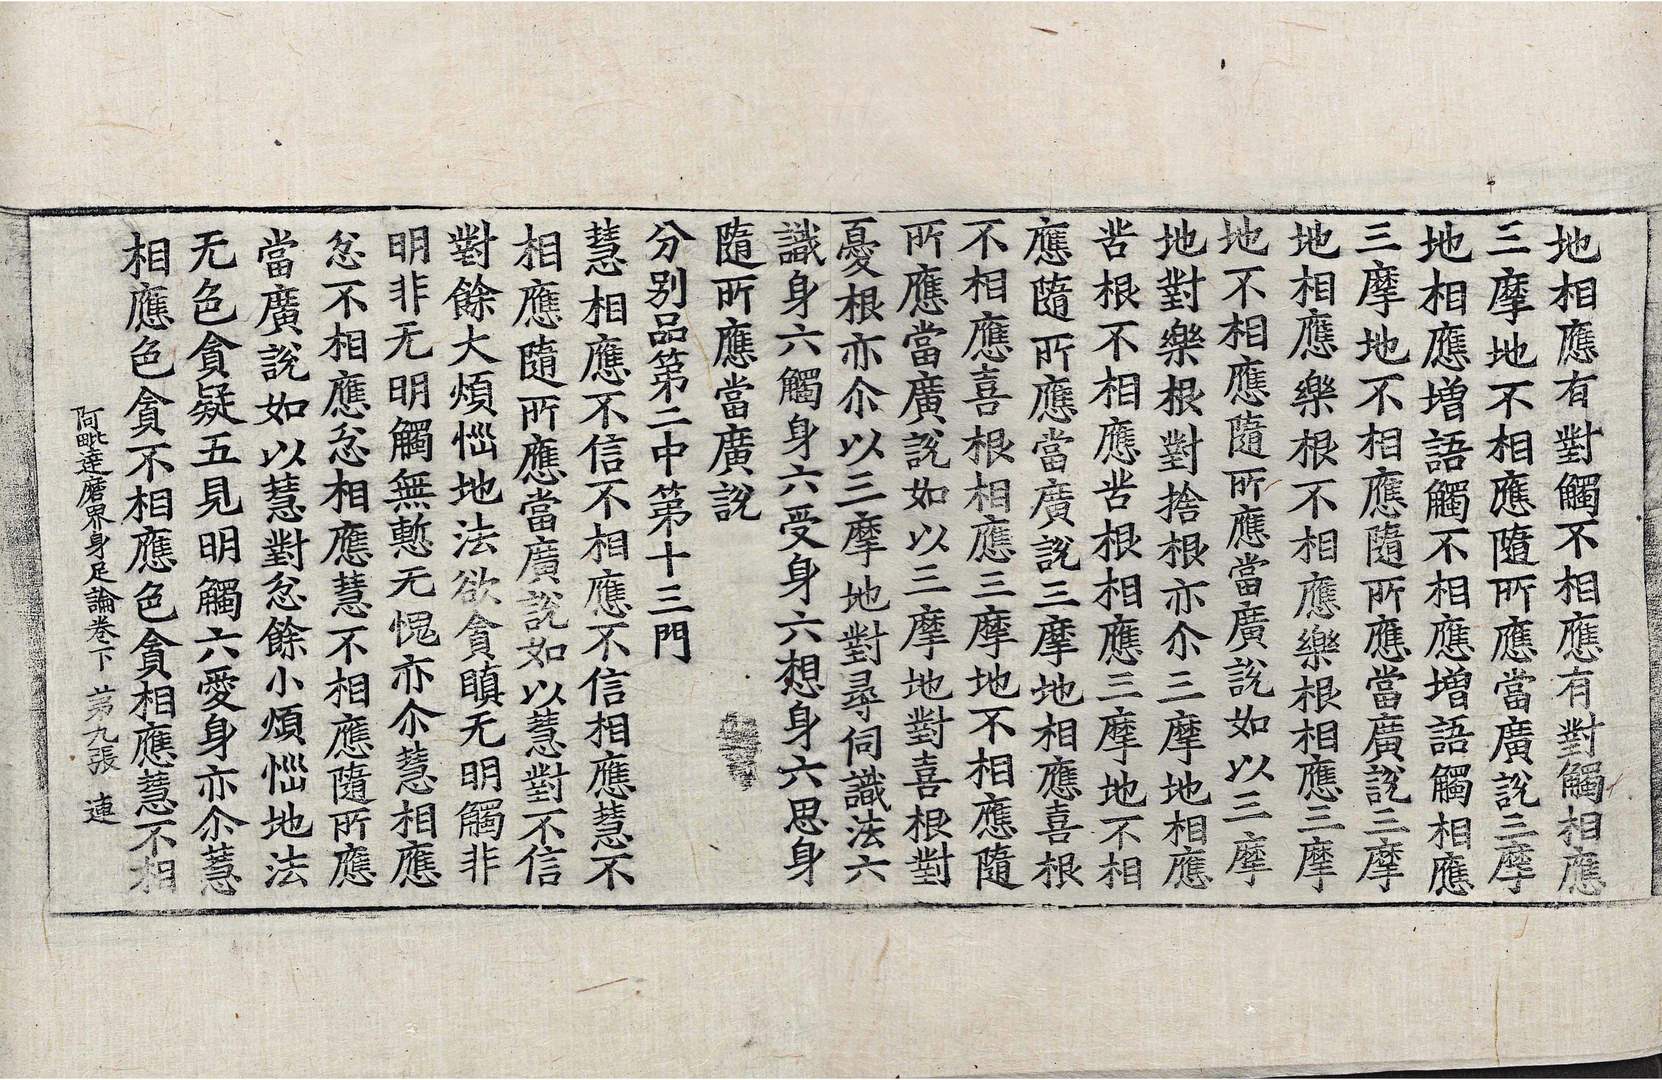 地相應有對觸不相應有對觸相應
三摩地不相應隨所應當廣說三摩
地相應增語觸不相應增語觸相應
三摩地不相應隨所應當廣說三摩
地相應樂根不相應樂根相應三摩
地不相應隨所應當廣說如以三摩
地對樂根對捨根亦尒三摩地相應
苦根不相應苦根相應三摩地不相
應隨所應當廣說三摩地相應喜根
不相應喜根相應三摩地不相應隨
所應當廣說如以三摩地對喜根對
憂根亦尒以三摩地對尋伺識法六
識身六觸身六受身六想身六思身
隨所應當廣說
分別品第二中第十三門
慧相應不信不相應不信相應慧不
相應隨所應當廣說如以慧對不信
對餘大煩惱地法欲貪瞋无明觸非
明非无明觸無慙无愧亦尒慧相應
忿不相應忿相應慧不相應隨所應
當廣說如以慧對忿餘小煩惱地法
无色貪疑五見明觸六愛身亦尒慧
相應色貪不相應色貪相應慧不相
阿毗達磨界身足論卷下 苐九張 連